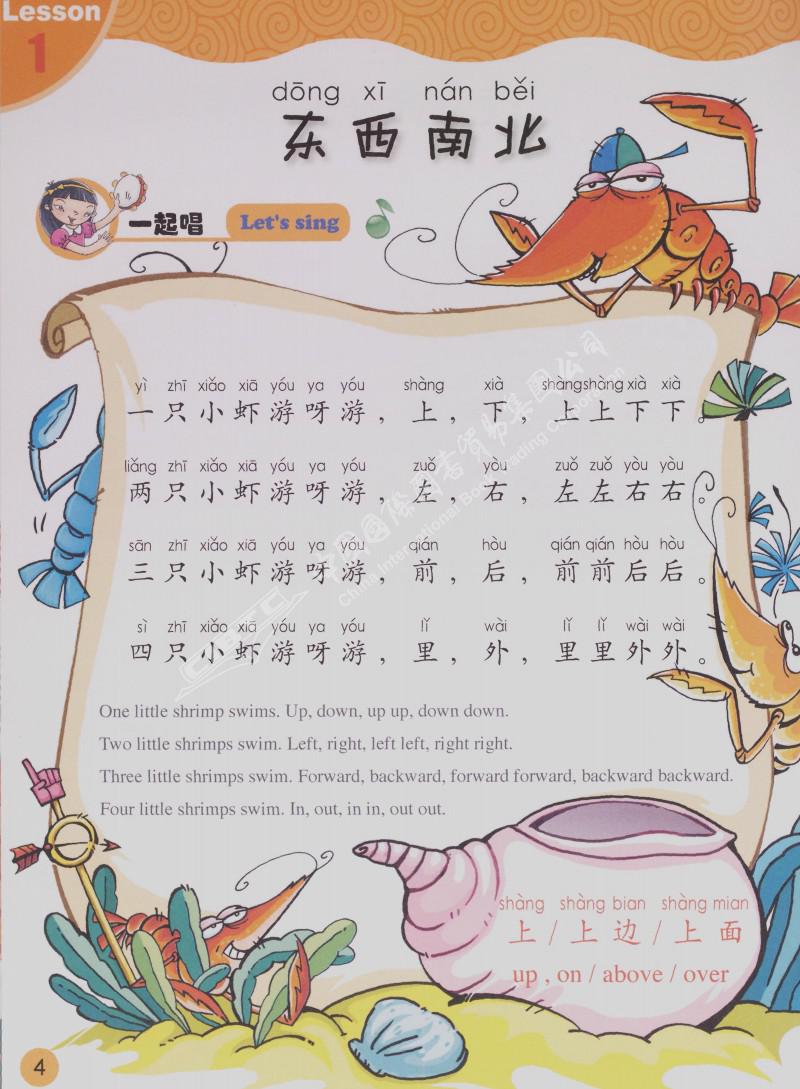 Lesson
1
dōng xī nán běi
东西南北
一起唱 Let's sing
yì zhī xiǎo xiā yóu ya yóu shàng xià shàng shàng xià xià
一只小虾游呀游，上，下，上上下下。
liǎng zhī xiǎo xiā yóu ya yóu zuǒ yòu zuǒ zuǒ yòu yòu
两只小虾游呀游，左，右，左左右右。
sān zhī xiǎo xiā yóu ya yóu qián hòu qián qián hòu hòu
三只小虾游呀游，前，后，前前后后。
sì zhī xiǎo xiā yóu ya yóu lǐ wài lǐ lǐ wài wài
四只小虾游呀游，里，外，里里外外。
中国国际图书贸易集团公司
China International Book Trading Corporation
One little shrimp swims. Up, down, up up, down down.
Two little shrimps swim. Left, right, left left, right right.
Three little shrimps swim. Forward, backward, forward forward, backward backward.
Four little shrimps swim. In, out, in in, out out.
shàng shàng bian shàng mian
上 / 上边 / 上面
up , on / above / over
4